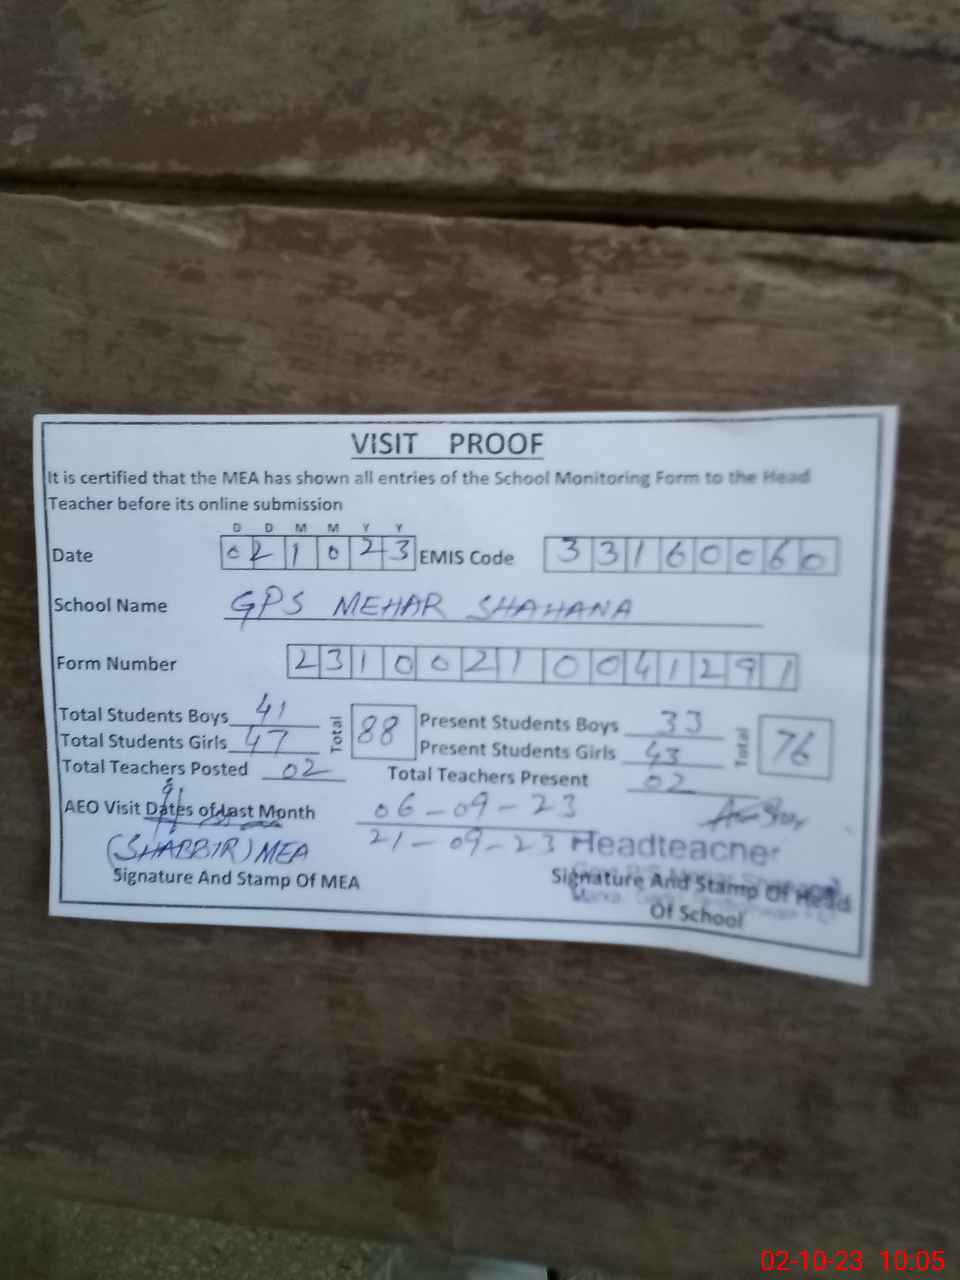 VISIT PROOF
It is certified that the MEA has shown all entries of the School Monitoring Form to the Head
Teacher before its online submission
D D M M Y Y
Date 021023 EMIS Code 33160060
School Name GPS MEHAR SHAHANA
Form Number 23100210041291
Total Students Boys 41 Total 88 Present Students Boys 33 Total 76
Total Students Girls 47 Present Students Girls 43
Total Teachers Posted 02 Total Teachers Present 02
AEO Visit Dates of Last Month 06-09-23
21-09-23 Headteacher
(SHABBIR) MEA
Signature And Stamp Of MEA Signature And Stamp Of Head
Of School
02-10-23 10:05